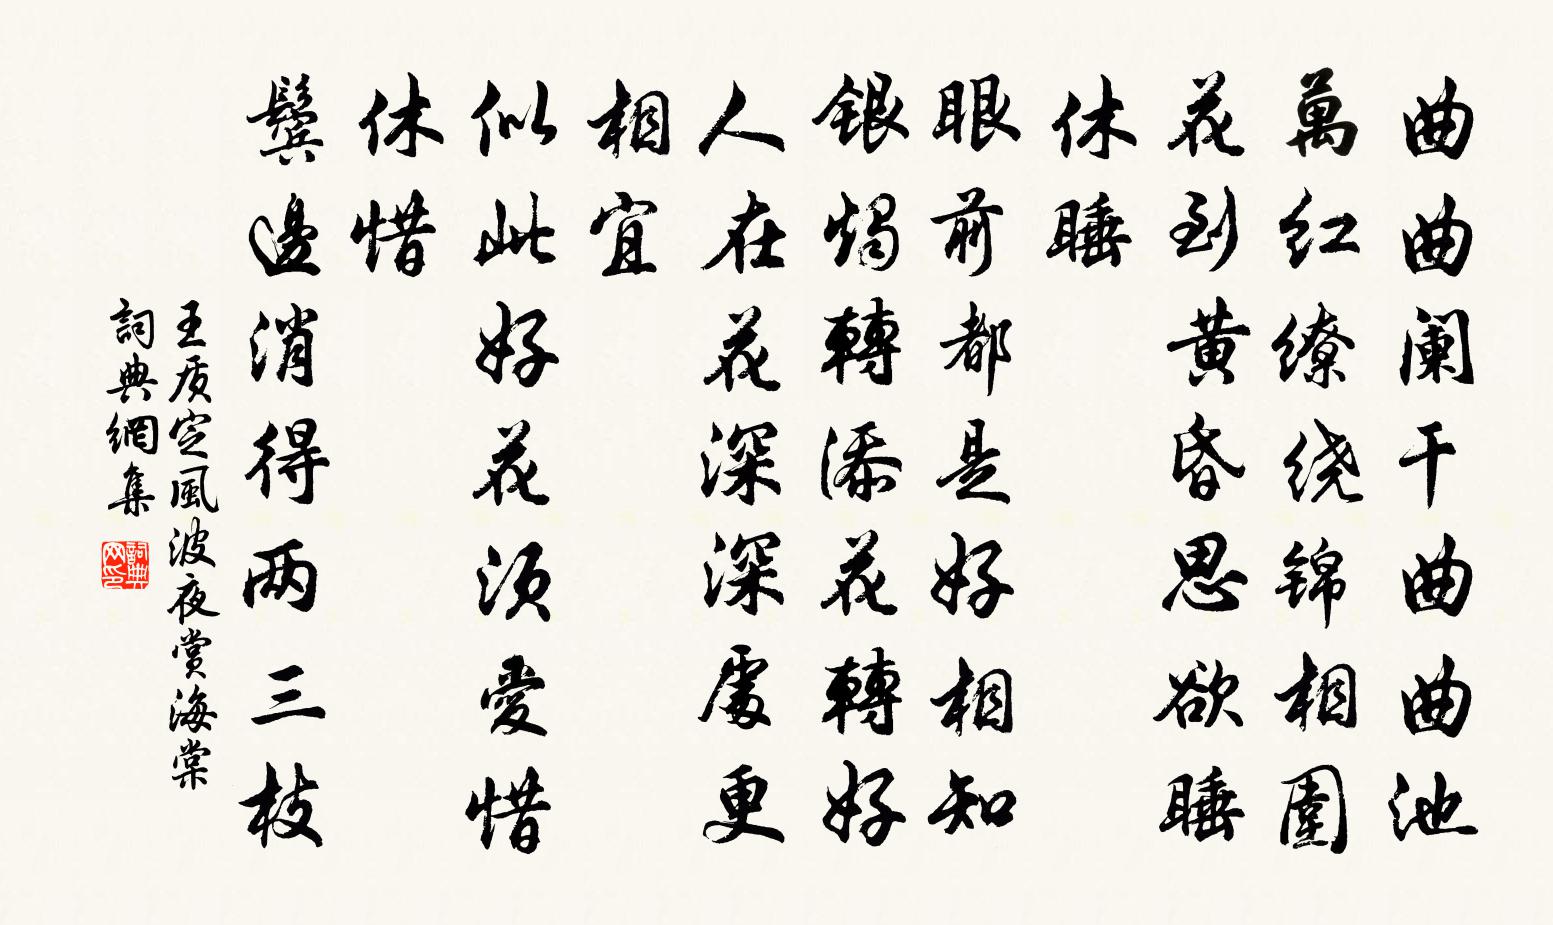 曲曲阑干曲曲池
萬红缭绕锦相圍
花到黄昏思欲睡
休睡
眼前都是好相知
銀燭轉添花轉好
人在花深深處更
相宜
似此好花须愛惜
休惜
鬓邊消得两三枝
王质定風波夜赏海棠
詞典網集
詞典网印